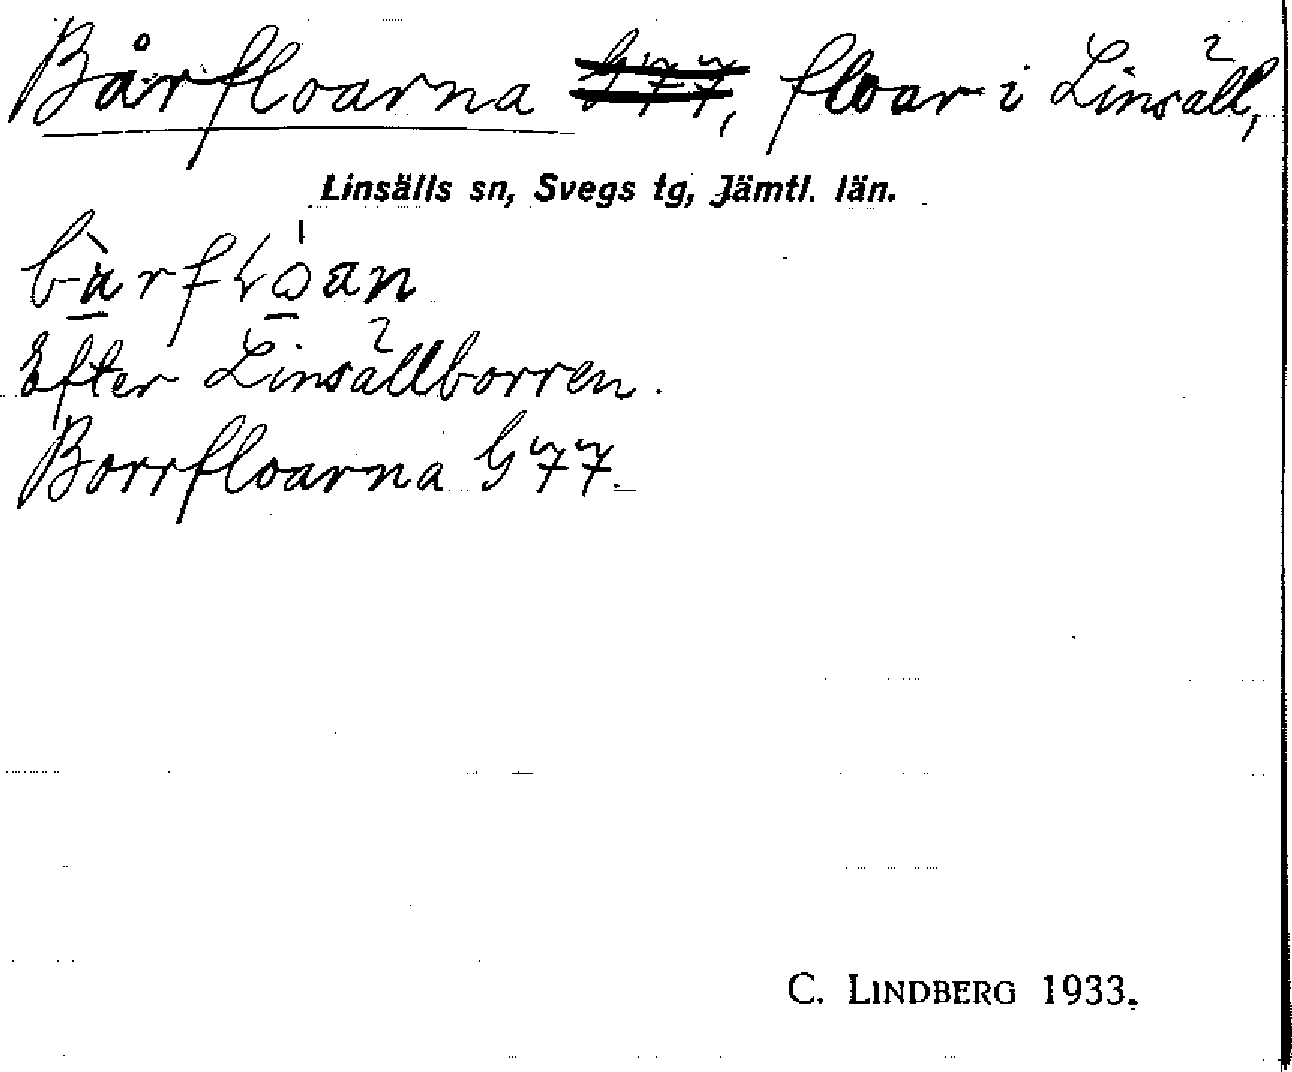 Bårfloarna G77, floar i Linsäll,
Linsälls sn, Svegs tg, Jämtl. län.
Efter Linsällborren.
Borrfloarna G77.
C. LINDBERG 1933.